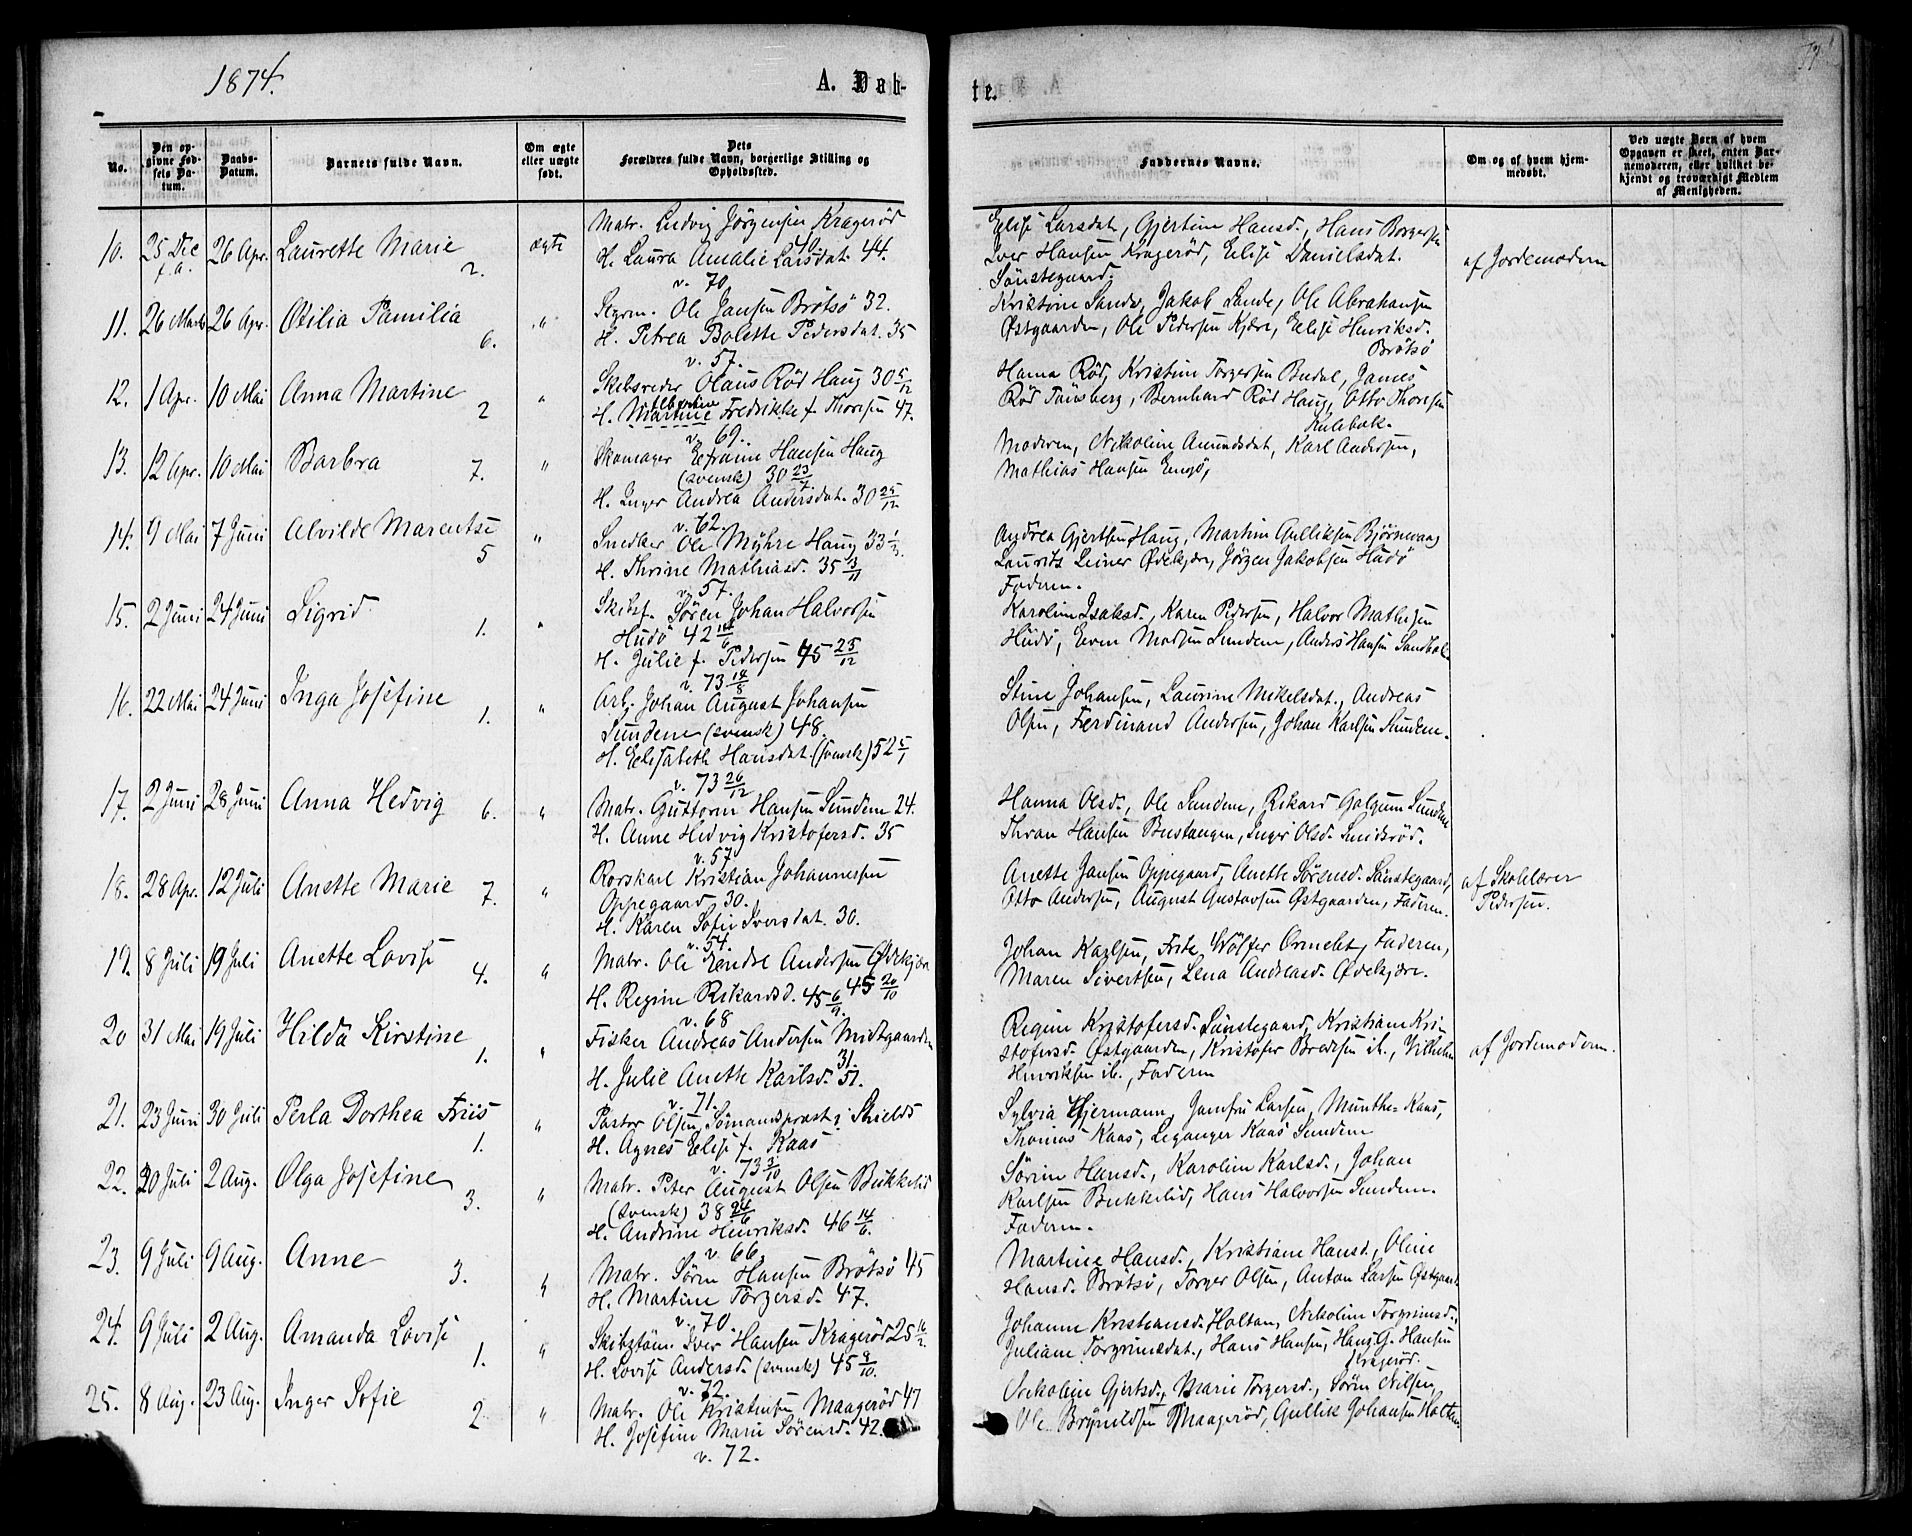 1874.
A. Døb-
te.
No.
Den op-
givne Fød-
sels Da-
tum.
Daabs-
Datum.
Barnets fulde Navn.
Om ægte
eller uægte
født.
Dets
Forældres fulde Navn, borgerlige Stilling og
Opholdssted.
Faddernes Navne.
Om og af hvem hjem-
medøbt.
Ved uægte Børn af hvem
Opgaven er skeet, enten Bar-
nemoderen, eller hvilket be-
kjendt og troværdigt Medlem
af Menigheden.
10. 25 Dec f. a. 26 Apr. Laurette Marie 2. ægte
Matr. Ludvig Jörgensen Kragerød 40
H. Laura Amalie Larsdat. 44.
v. 70
Elise Larsdat, Gjertine Hansd., Hans Borgersen
Iver Hansen Kragerød, Elise Danielsdat.
Sönstegaard.
af Jordemodern
11. 26 Marts 26 Apr. Otilia Pamilia 6. "
Ole Jansen Brötsö 32.
H. Petrea Bolette Pedersdat. 35
v. 57.
Kristine Sande, Jakob Sande, Ole Abrahamsen
Østgaarden, Ole Pedersen Kjære, Elise Henriksd.
Brötsö
12. 1 Apr. 10 Mai Anna Martine 2 "
Skibsreder Olaus Röd Haug 30 5/12
H. Martine Fredrikke f. Thoresen 47.
v. 69.
Hanna Röd, Kristine Torgersen Budal, James
Röd Tönsberg, Bernhard Röd Haug, Otto Thoresen
13. 12 Apr. 10 Mai Barbra 7. "
Skomager Efraim Hansen Haug
(svensk) 30 23/7
H. Inger Andrea Andersdat. 30 25/12
v. 62.
Moderen, Nikoline Amundsdat, Karl Andersen,
Mathias Hansen Engö,
14. 9 Mai 7 Juni Alvilde Marentse 5 "
Snedker Ole Myhre Haug 33 1/3.
H. Thrine Mathiasd. 35 13/11
v. 57.
Andrea Gjertsen Haug, Martin Gulliksen Bjørnevaag
Laurits Leiner Ødekjær, Jörgen Jakobsen Hudö
Faderen.
15. 2 Juni 24 Juni Sigrid 1. "
Skibsf. Sören Johan Halvorsen
Hudö 42 14/6
H. Julie f. Pedersen 45 25/12
v. 73 14/8
Karoline Isaksd., Karen Pedersen, Halvor Mathisen
Hudö, Even Madsen Sundene, Anders Hansen
16. 22 Mai 24 Juni Inga Josefine 1. "
Arb. Johan August Johansen
Sundene (svensk) 48.
H. Elisabeth Hansdat. (svensk) 52 5/1
v. 73 26/12
Stine Johansen, Laurine Mikelsdat., Andreas
Olsen, Ferdinand Andersen, Johan Karlsen Sundene.
17. 2 Juni 28 Juni Anna Hedvig 6. "
Matr. Guttorm Hansen Sundene 24.
H. Anne Hedvig Kristofersd. 35
v. 57
Hanna Olsd., Ole Sundene, Rikard Sundene
Thran Hansen Bustangen, Inger Olsd. Smidsrød.
18. 28 Apr. 12 Juli Anette Marie 7. "
Rorskarl Kristian Johannesen
Oppegaard 30.
H. Karen Sofie Iversdat. 30.
v. 54.
Anette Jansen Oppegaard, Anette Sörensd. Sönstegaard,
Otto Andersen, August Gustavsen Østgaarden, Faderen.
af Skolelærer
Pedersen.
19. 8 Juli 19 Juli Anette Lovise 4. "
Matr. Ole Endre Andersen Ødekjær
45 20/10
H. Regine Rikardsd. 45 6/9.
v. 68
Johan Karlsen, Fritz Wölfer Ormelet, Faderen,
Maren Sivertsen, Lena Andreasd. Ødekjær.
20 31 Mai 19 Juli Hilda Kirstine 1. "
Fisker Andreas Andersen Midtgaarden
31.
H. Julie Anette Karlsd. 51.
v. 71.
Regine Kristofersd. Sönstegaard, Kristiane Kri-
stofersd. Østgaarden, Kristofer Bredesen ib., Vilhelm
Henriksen ib., Faderen
af Jordemodern.
21. 23 Juni 30 Juli Perla Dorthea Friis 1. "
Pastor Olsen, Sömandsprest i Shields
H. Agnes Elise f. Kaas
v. 73 3/10
Sylvia Hjermann, Jomfru Larsen, Munthe-Kaas,
Thomas Kaas, Leganger Kaas Sundene
22. 20 Juli 2 Aug. Olga Josefine 3. "
Matr. Peter August Olsen Bukkelid
(svensk) 38 24/6
H. Andrine Henriksd. 46 14/6.
v. 66.
Sörine Hansd., Karoline Karlsd., Johan
Karlsen Bukkelid, Hans Halvorsen Sundene.
Faderen.
23. 9 Juli 9 Aug. Anne 3. "
Matr. Sören Hansen Brötsö 45
H. Martine Torgersd. 47.
v. 70
Martine Hansd., Kristiane Hansd., Oline
Hansd. Brötsö, Torger Olsen, Anton Larsen Østgaard
24. 9 Juli 2 Aug. Amanda Lovise 1. "
Skibstöm. Iver Hansen Kragerød 25 16/2.
H. Lovise Andersd. (svensk) 45 9/10.
v. 72.
Johanne Kristiansd. Holtan, Nikoline Torgrimsd.,
Juliane Torgrimsdat., Hans Hansen, Hans G. Hansen
Kragerød.
25. 8 Aug. 23 Aug. Inger Sofie 2. "
Matr. Ole Kristensen Maagerød 47
H. Josefine Marie Sörensd. 42.
v. 72.
Nikoline Gjertsd., Marie Torgersd., Sören Nilsen,
Ole Brynildsen Maagerød, Gullik Johansen Holtan